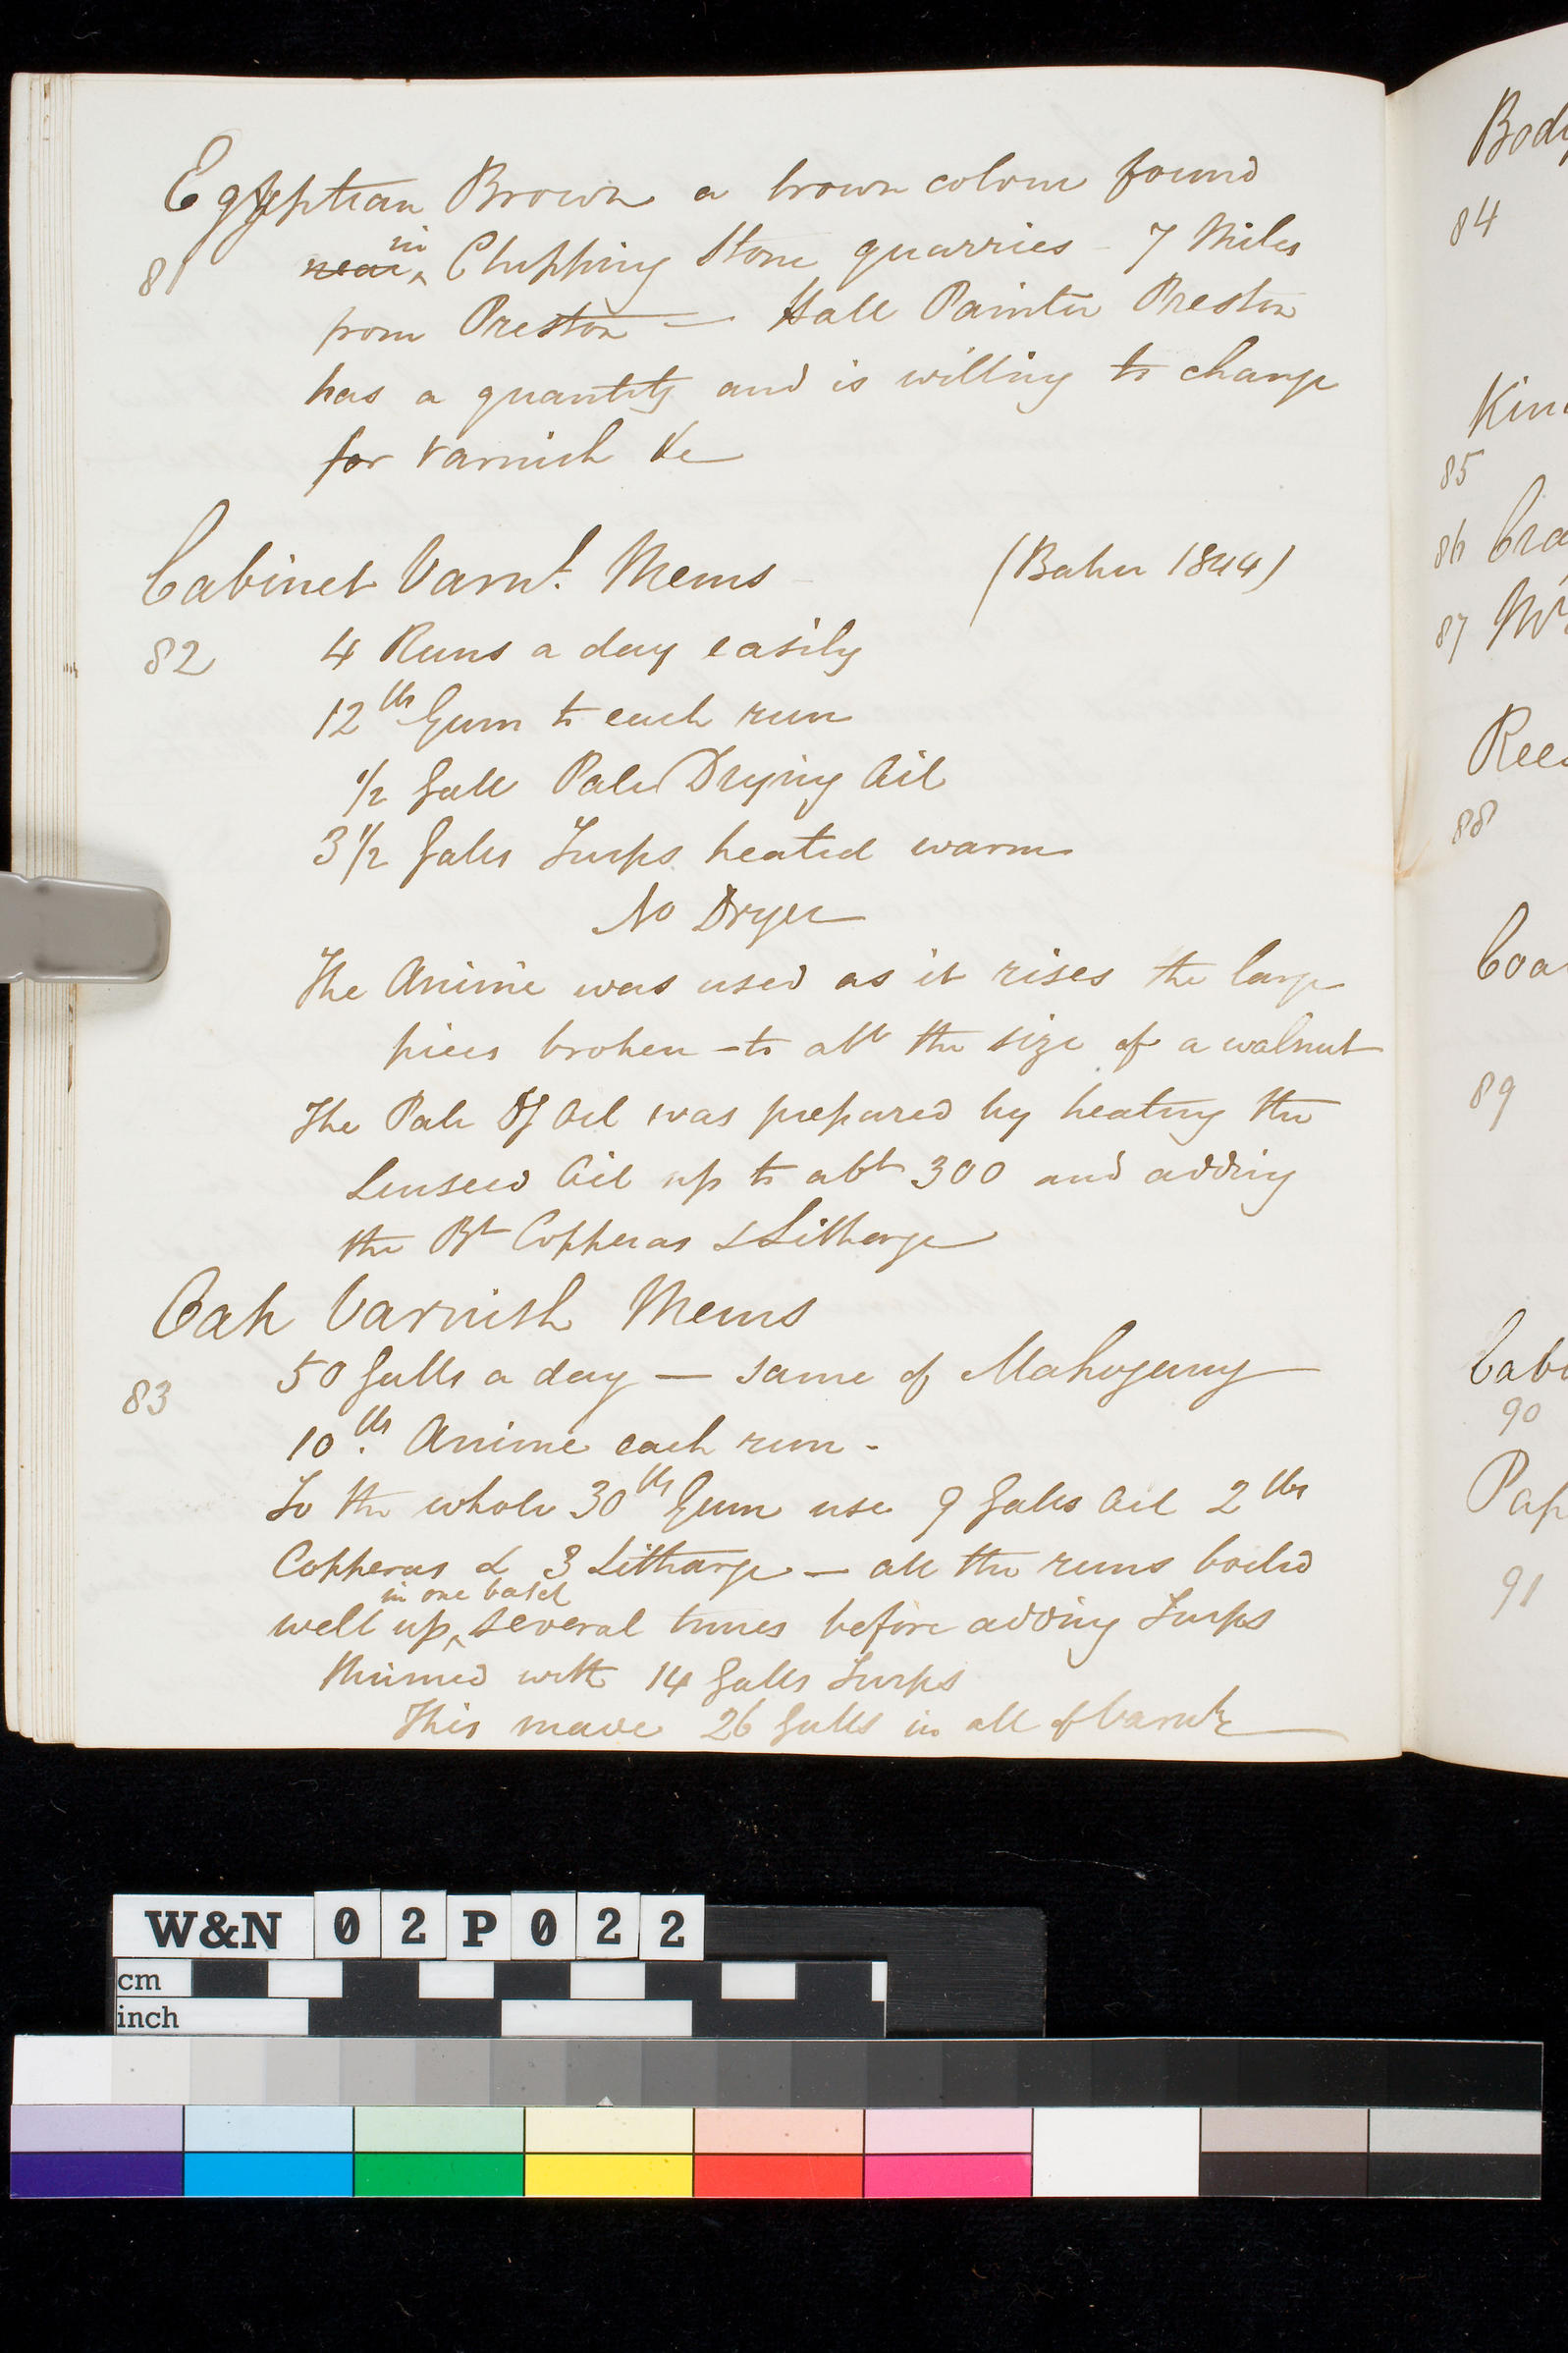 Egyptian Brown a brown colour found
81 near in Chipping Stone quarries - 7 Miles
from Preston — Hall Painter Preston
has a quantity and is willing to change
for varnish &c
Cabinet Varnt. Mems (Baker 1844)
82 4 Runs a day easily
12 lbs Gum to each run
1/2 Gall Pale Drying Oil
3 1/2 Galls Turps heated warm
No Dryer
The Anime was used as it rises the large
pieces broken to abt the size of a walnut
The Pale Dg Oil was prepared by heating the
Linseed Oil up to abt 300 and adding
the Bt Copperas & Litharge
Oak Varnish Mems
83 50 Galls a day — same of Mahogany
10 lbs. Anime each run -
To the whole 30 lbs Gum use 9 Galls Oil 2 lbs
Copperas & 3 Litharge — all the runs boiled
in one batch
well up several times before adding Turps
thinned with 14 Galls Turps
This made 26 Galls in all of
Body
84
85
86
87 Mr
88
89
90
91
W&N 02P022
cm
inch